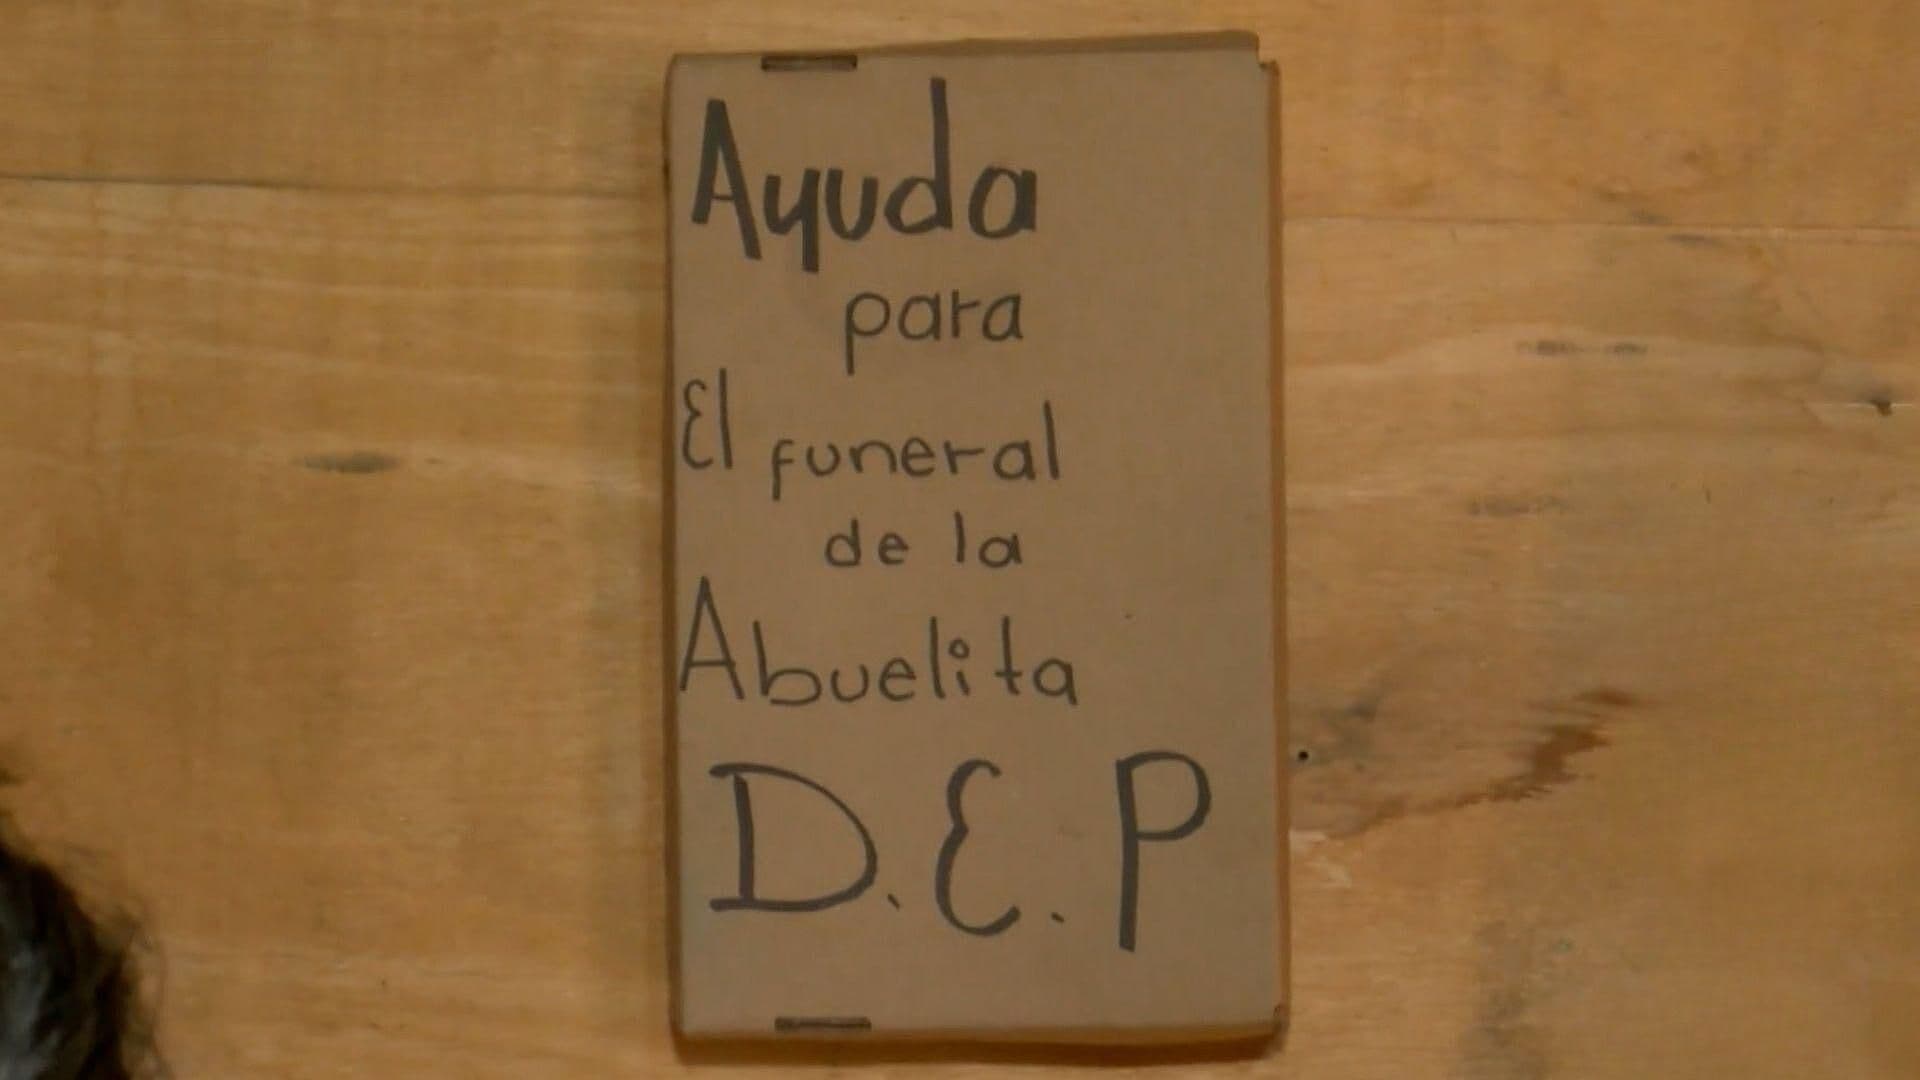 Ayuda
para
El funeral
de la
Abuelita
D.E.P